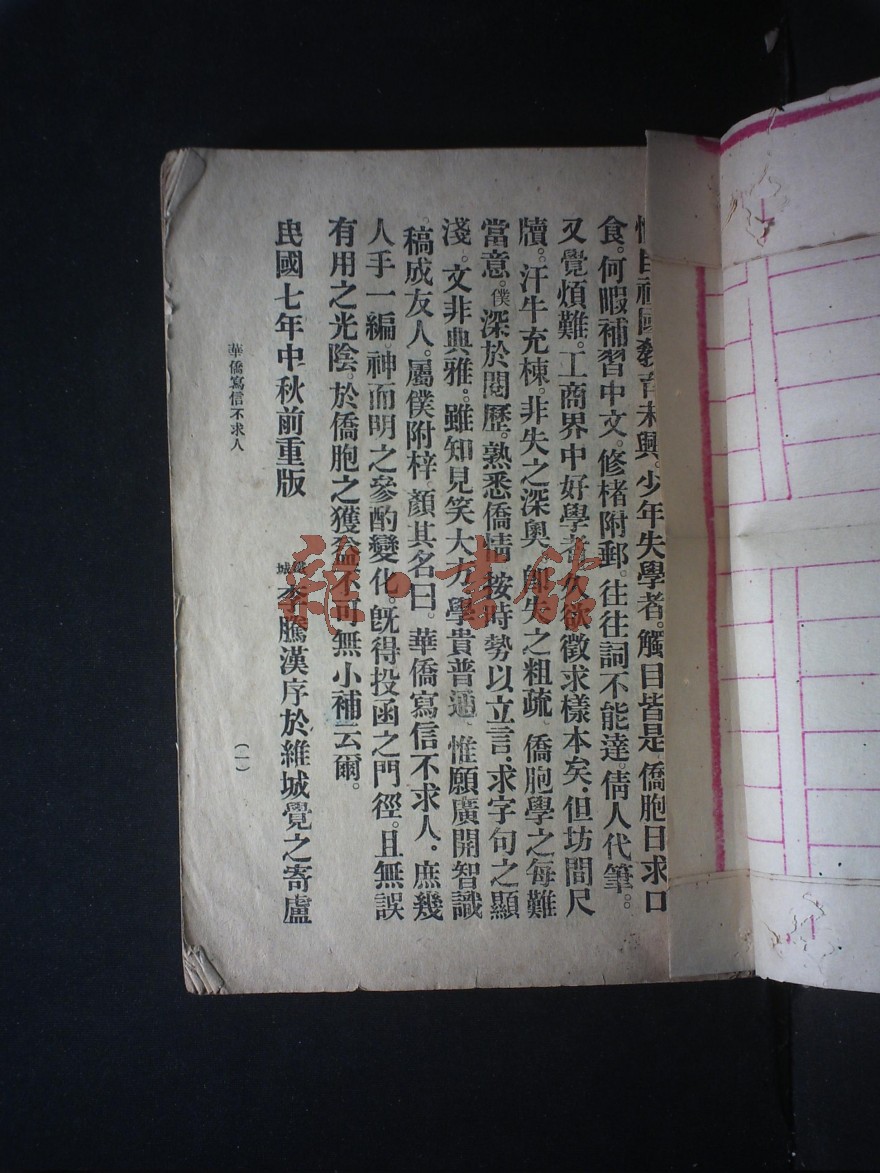 惟自祖國教育未興。少年失學者。觸目皆是。僑胞日求口
食。何暇補習中文。修楮附郵。往往詞不能達。倩人代筆。
又覺煩難。工商界中好學者久欲徵求樣本矣．但坊間尺
牘。汗牛充棟。非失之深奧 卽失之粗疏 僑胞學之每難
當意。僕深於閱歷。熟悉僑情 按時勢以立言．求字句之顯
淺。文非典雅。雖知見笑大方 學貴普通 惟願廣開智識
。稿成友人。屬僕附梓。顏其名曰。華僑寫信不求人．庶幾
人手一編。神而明之參酌變化。旣得投函之門徑。且無誤
有用之光陰。於僑胞之獲益不可無小補云爾。
民國七年中秋前重版 鐵城 李騰漢序於維城覺之寄盧
華僑寫信不求人 (一)
雜·書館